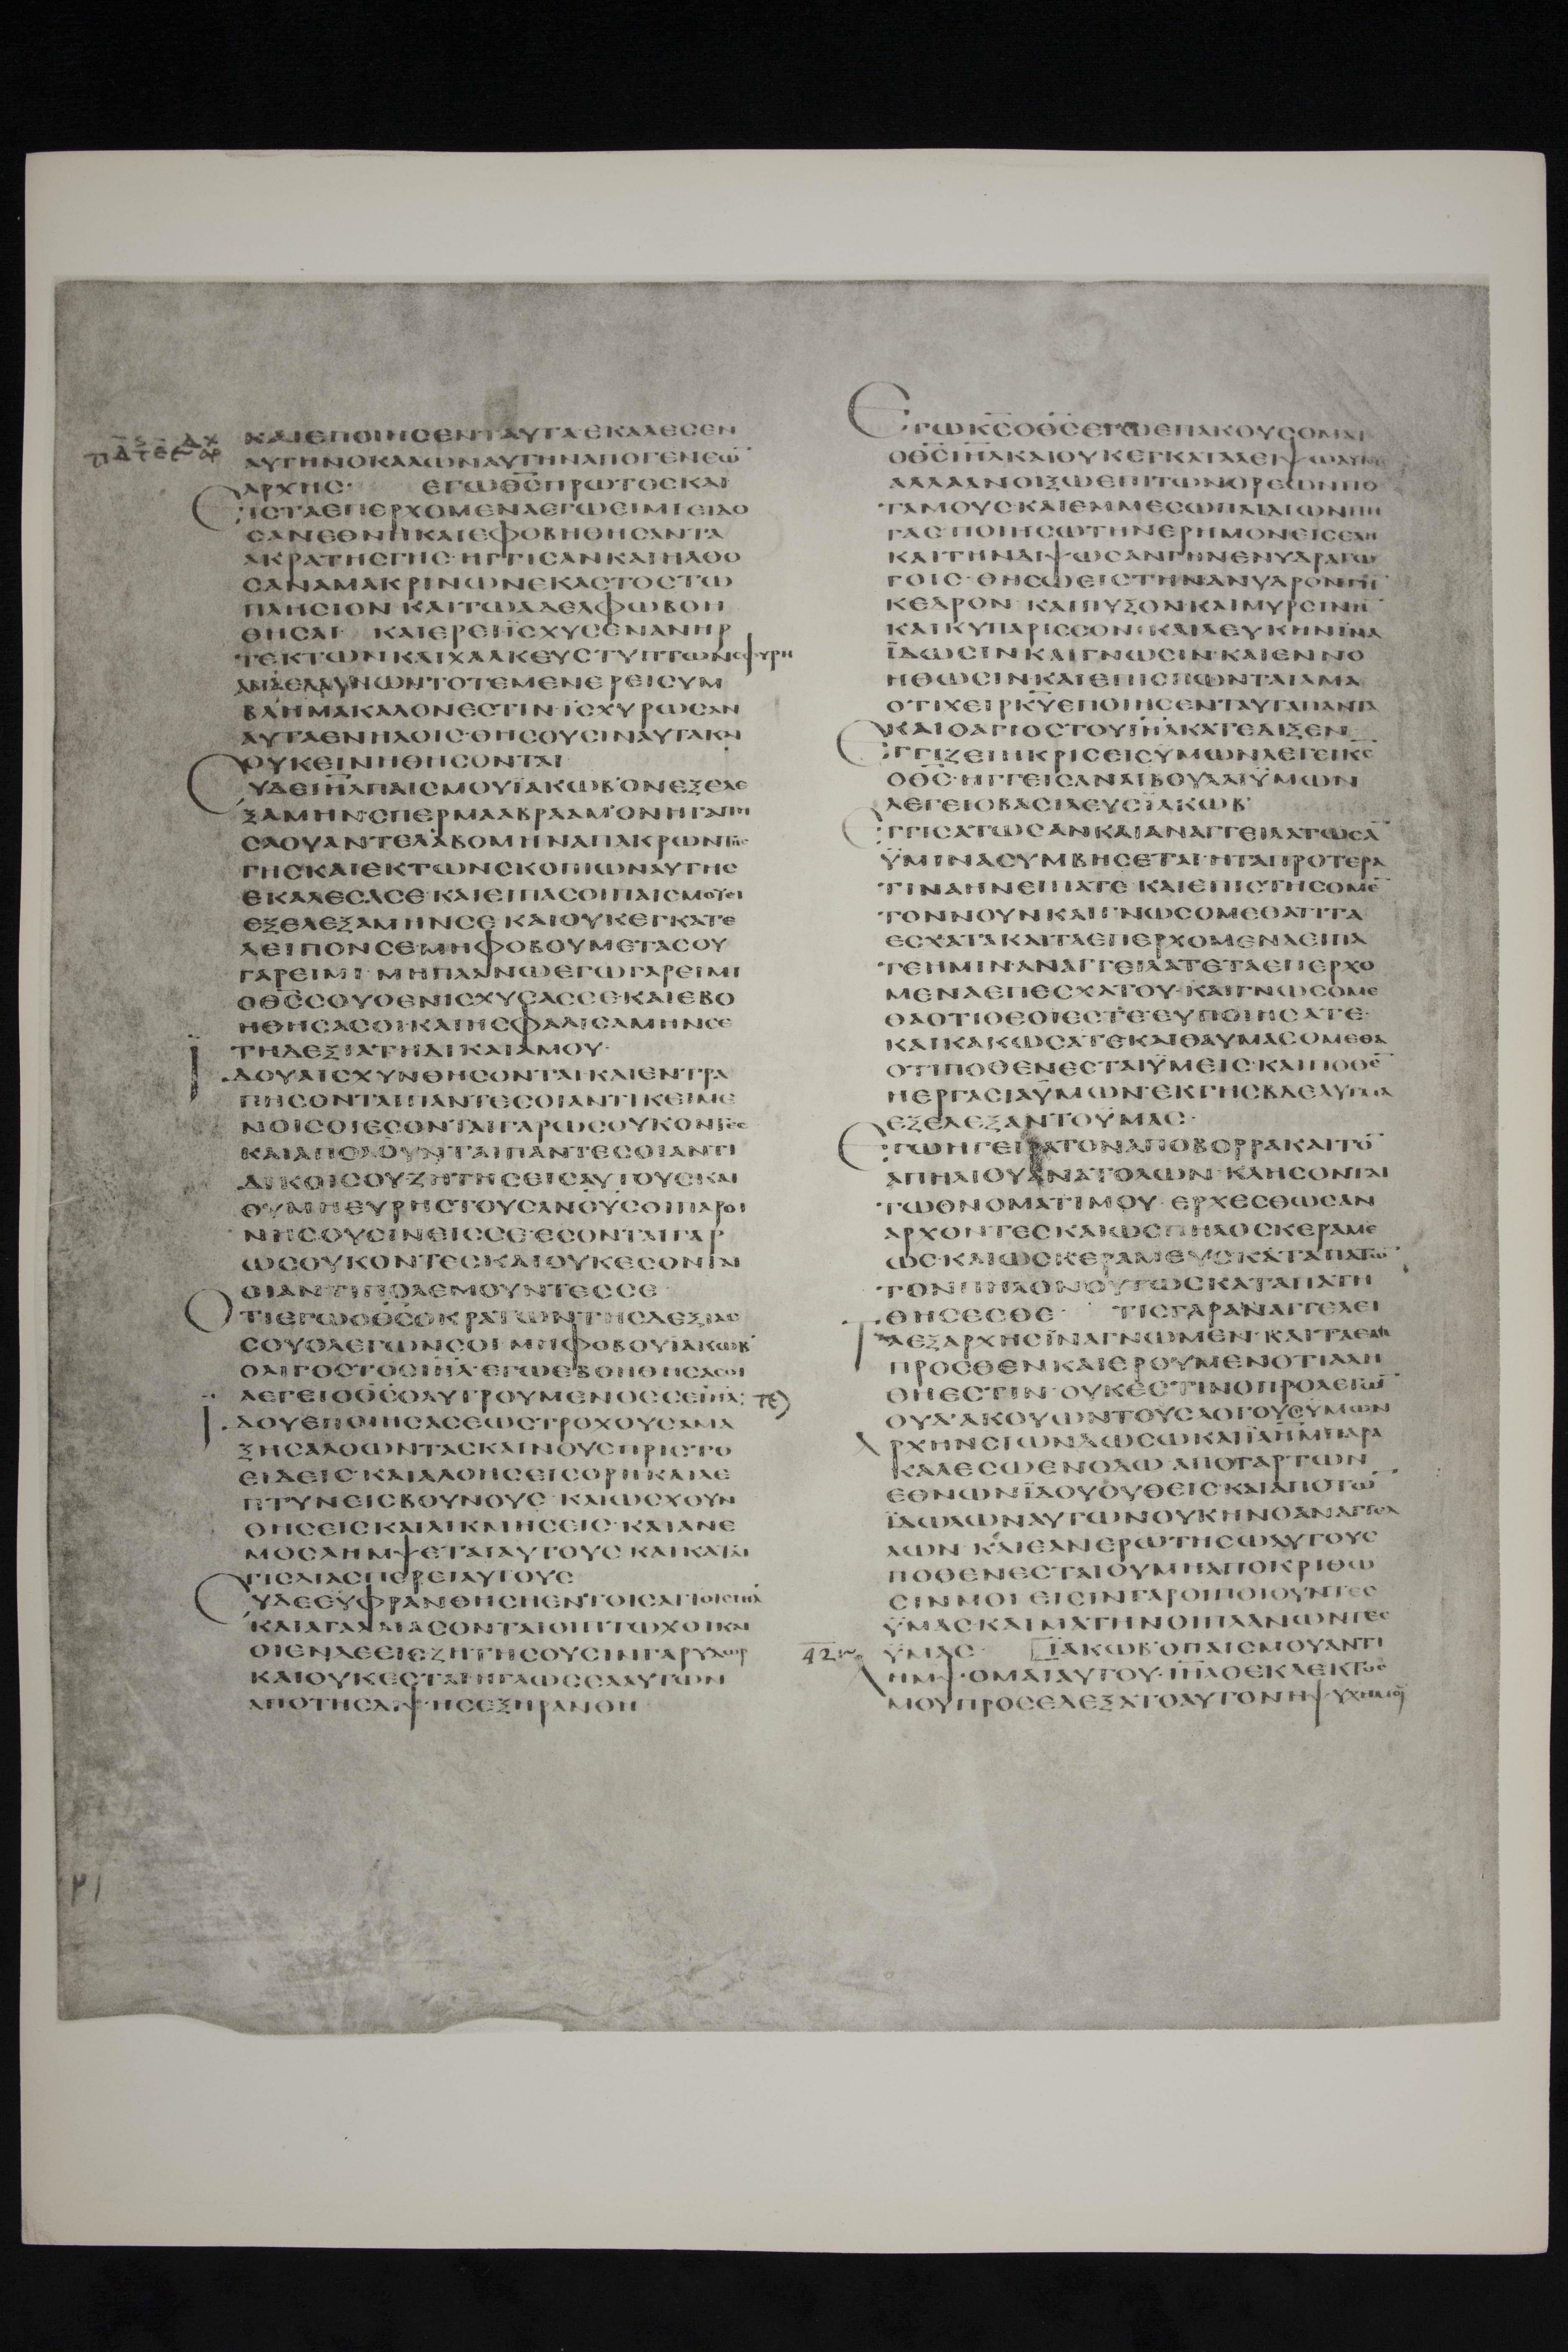 ΚΑΙΕΠΟΙΗϹΕΝΤΑΥΤΑΕΚΑΛΕϹΕΝ
ΑΥΤΗΝΟΚΑΛΩΝΑΥΤΗΝΑΠΟΓΕΝΕΩ̅
ΑΡΧΗϹ· ΕΓΩΘ̅Ϲ̅ΠΡΩΤΟϹΚΑΙ
ΕΙϹΤΑΕΠΕΡΧΟΜΕΝΑΕΓΩΕΙΜΙΕΙΔΟ
ϹΑΝΕΘΝΗΚΑΙΕΦΟΒΗΘΗϹΑΝΤΑ
ΑΚΡΑΤΗϹΓΗϹ·ΗΓΓΙϹΑΝΚΑΙΗΛΘΟ
ϹΑΝΑΜΑΚΡΙΝΩΝΕΚΑϹΤΟϹΤΩ
ΠΛΗϹΙΟΝ·ΚΑΙΤΩΑΔΕΛΦΩΒΟΗ
ΘΗϹΑΙ· ΚΑΙΕΡΕΙΪϹΧΥϹΕΝΑΝΗΡ
ΤΕΚΤΩΝΚΑΙΧΑΛΚΕΥϹΤΥΠΤΩΝϹΦΥΡΗ
ΑΜΑΕΛΑΥΝΩΝΤΟΤΕΜΕΝΕΡΕΙϹΥΜ
ΒΛΗΜΑΚΑΛΟΝΕϹΤΙΝ·ΪϹΧΥΡΩϹΑΝ
ΑΥΤΑΕΝΗΛΟΙϹ·ΘΗϹΟΥϹΙΝΑΥΤΑΚΑΙ
ΟΥΚΕΙΝΗΘΗϹΟΝΤΑΙ
ϹΥΔΕΙ̅Η̅Λ̅ΠΑΙϹΜΟΥΪΑΚΩΒ·ΟΝΕΞΕΛΕ
ΞΑΜΗΝ·ϹΠΕΡΜΑΑΒΡΑΑΜ·ΟΝΗΓΑΠΗ
ϹΑΟΥΑΝΤΕΛΑΒΟΜΗΝΑΠΑΚΡΩΝΤΗϹ
ΓΗϹΚΑΙΕΚΤΩΝϹΚΟΠΙΩΝΑΥΤΗϹ
ΕΚΑΛΕϹΑϹΕ·ΚΑΙΕΙΠΑϹΟΙΠΑΙϹΜΟΥΕΙ
ΕΞΕΛΕΞΑΜΗΝϹΕ·ΚΑΙΟΥΚΕΓΚΑΤΕ
ΛΕΙΠΟΝϹΕ·ΜΗΦΟΒΟΥΜΕΤΑϹΟΥ
ΓΑΡΕΙΜΙ·ΜΗΠΛΑΝΩΕΓΩΓΑΡΕΙΜΙ
ΟΘ̅Ϲ̅ϹΟΥΟΕΝΙϹΧΥϹΑϹϹΕ·ΚΑΙΕΒΟ
ΗΘΗϹΑϹΟΙ·ΚΑΙΗϹΦΑΛΙϹΑΜΗΝϹΕ
ΤΗΔΕΞΙΑΤΗΔΙΚΑΙΑΜΟΥ·
ΙΔΟΥΑΙϹΧΥΝΘΗϹΟΝΤΑΙ·ΚΑΙΕΝΤΡΑ
ΠΗϹΟΝΤΑΙΠΑΝΤΕϹΟΙΑΝΤΙΚΕΙΜΕ
ΝΟΙϹΟΙΕϹΟΝΤΑΙΓΑΡΩϹΟΥΚΟΝΤΕϹ
ΚΑΙΑΠΟΛΟΥΝΤΑΙΠΑΝΤΕϹΟΙΑΝΤΙ
ΔΙΚΟΙϹΟΥΖΗΤΗϹΕΙϹΑΥΤΟΥϹΚΑΙ
ΟΥΜΗΕΥΡΗϹΤΟΥϹΑΝΟΥϹΟΙΠΑΡΟΙ
ΝΗϹΟΥϹΙΝΕΙϹϹΕ·ΕϹΟΝΤΑΙΓΑΡ
ΩϹΟΥΚΟΝΤΕϹΚΑΙΟΥΚΕϹΟΝΤΑΙ
ΟΙΑΝΤΙΠΟΛΕΜΟΥΝΤΕϹϹΕ
ΟΤΙΕΓΩΟΘ̅Ϲ̅ΟΚΡΑΤΩΝΤΗϹΔΕΞΙΑϹ
ϹΟΥΟΛΕΓΩΝϹΟΙ·ΜΗΦΟΒΟΥΙΑΚΩΒ
ΟΛΙΓΟϹΤΟϹΙ̅Η̅Λ̅·ΕΓΩΕΒΟΗΘΗϹΑϹΟΙ
ΛΕΓΕΙΟΘ̅Ϲ̅ΟΛΥΤΡΟΥΜΕΝΟϹϹΕΙ̅Η̅Λ̅:
ΙΔΟΥΕΠΟΙΗϹΑϹΕΩϹΤΡΟΧΟΥϹΑΜΑ
ΞΗϹΑΛΟΩΝΤΑϹΚΑΙΝΟΥϹΠΡΙϹΤΡΟ
ΕΙΔΕΙϹ·ΚΑΙΑΛΟΗϹΕΙϹΟΡΗ·ΚΑΙΛΕ
ΠΤΥΝΕΙϹΒΟΥΝΟΥϹ·ΚΑΙΩϹΧΟΥΝ
ΘΗϹΕΙϹ·ΚΑΙΛΙΚΜΗϹΕΙϹ·ΚΑΙΑΝΕ
ΜΟϹΛΗΜΨΕΤΑΙΑΥΤΟΥϹ·ΚΑΙΚΑΤΑΙ
ΓΙϹΔΙΑϹΠΕΡΕΙΑΥΤΟΥϹ
ϹΥΔΕΕΥΦΡΑΝΘΗϹΗΕΝΤΟΙϹΑΓΙΟΙϹΙ̅Η̅Λ̅
ΚΑΙΑΓΑΛΛΙΑϹΟΝΤΑΙΟΙΠΤΩΧΟΙΚΑΙ
ΟΙΕΝΔΕΕΙϹΖΗΤΗϹΟΥϹΙΝΓΑΡΥΔΩΡ
ΚΑΙΟΥΚΕϹΤΑΙΗΓΛΩϹϹΑΑΥΤΩΝ
ΑΠΟΤΗϹΔΙΨΗϹΕΞΗΡΑΝΘΗ
ΕΓΩΚ̅Ϲ̅ΟΘ̅Ϲ̅ΕΓΩΕΠΑΚΟΥϹΟΜΑΙ
ΟΘ̅Ϲ̅Ι̅Η̅Λ̅ΚΑΙΟΥΚΕΓΚΑΤΑΛΕΙΨΩΑΥΤΟΥϹ
ΑΛΛΑΑΝΟΙΞΩΕΠΙΤΩΝΟΡΕΩΝΠΟ
ΤΑΜΟΥϹ·ΚΑΙΕΜΜΕϹΩΠΑΙΔΙΩΝΠΗ
ΓΑϹ·ΠΟΙΗϹΩΤΗΝΕΡΗΜΟΝΕΙϹΕΛΗ
ΚΑΙΤΗΝΔΙΨΩϹΑΝΓΗΝΕΝΥΔΡΑΓΩ
ΓΟΙϹ·ΘΗϹΩΕΙϹΤΗΝΑΝΥΔΡΟΝΓΗ̅
ΚΕΔΡΟΝ·ΚΑΙΠΥΞΟΝ·ΚΑΙΜΥΡϹΙΝΗ̅
ΚΑΙΚΥΠΑΡΙϹϹΟΝ·ΚΑΙΛΕΥΚΗΝΪΝΑ
ΪΔΩϹΙΝΚΑΙΓΝΩϹΙΝ·ΚΑΙΕΝΝΟ
ΗΘΩϹΙΝ·ΚΑΙΕΠΙϹΤΩΝΤΑΙΑΜΑ
ΟΤΙΧΕΙΡΚ̅Υ̅ΕΠΟΙΗϹΕΝΤΑΥΤΑΠΑΝΤΑ
ΚΑΙΟΑΓΙΟϹΤΟΥΙ̅Η̅Λ̅ΚΑΤΕΔΙΞΕΝ
ΕΓΓΙΖΕΙΗΚΡΙϹΕΙϹΥΜΩΝΛΕΓΕΙΚ̅Ϲ̅
ΟΘ̅Ϲ̅·ΗΓΓΕΙϹΑΝΑΙΒΟΥΛΑΙΫΜΩΝ
ΛΕΓΕΙΟΒΑϹΙΛΕΥϹΪΑΚΩΒ·
ΕΓΓΙϹΑΤΩϹΑΝΚΑΙΑΝΑΓΓΕΙΛΑΤΩϹΑ̅
ΫΜΙΝΑϹΥΜΒΗϹΕΤΑΙ·ΗΤΑΠΡΟΤΕΡΑ
ΤΙΝΑΗΝΕΙΠΑΤΕ·ΚΑΙΕΠΙϹΤΗϹΟΜΕ̅
ΤΟΝΝΟΥΝΚΑΙΓΝΩϹΟΜΕΘΑΤΙΤΑ
ΕϹΧΑΤΑΚΑΙΤΑΕΠΕΡΧΟΜΕΝΑΕΙΠΑ
ΤΕΗΜΙΝ·ΑΝΑΓΓΕΙΛΑΤΕΤΑΕΠΕΡΧΟ
ΜΕΝΑΕΠΕϹΧΑΤΟΥ·ΚΑΙΓΝΩϹΟΜΕ
ΘΑΟΤΙΘΕΟΙΕϹΤΕ·ΕΥΠΟΙΗϹΑΤΕ·
ΚΑΙΚΑΚΩϹΑΤΕ·ΚΑΙΘΑΥΜΑϹΟΜΕΘΑ
ΟΤΙΠΟΘΕΝΕϹΤΑΙΫΜΕΙϹ·ΚΑΙΠΟΘΕ̅
ΗΕΡΓΑϹΙΑΫΜΩΝ·ΕΚΓΗϹΒΔΕΛΥΓΜΑ
ΕΞΕΛΕΞΑΝΤΟΫΜΑϹ·
ΕΓΩΗΓΕΙΡΑΤΟΝΑΠΟΒΟΡΡΑΚΑΙΤΟ̅
ΑΠΗΛΙΟΥΑΝΑΤΟΛΩΝ·ΚΛΗϹΟΝΤΑΙ
ΤΩΟΝΟΜΑΤΙΜΟΥ·ΕΡΧΕϹΘΩϹΑΝ
ΑΡΧΟΝΤΕϹΚΑΙΩϹΠΗΛΟϹΚΕΡΑΜΕ
ΩϹ·ΚΑΙΩϹΚΕΡΑΜΕΥϹΚΑΤΑΠΑΤΩ̅
ΤΟΝΠΗΛΟΝΟΥΤΩϹΚΑΤΑΠΑΤΗ
ΘΗϹΕϹΘΕ· ΤΙϹΓΑΡΑΝΑΓΓΕΛΕΙ
ΤΑΕΞΑΡΧΗϹΪΝΑΓΝΩΜΕΝ·ΚΑΙΤΑΕΜ
ΠΡΟϹΘΕΝΚΑΙΕΡΟΥΜΕΝΟΤΙΑΛΗ
ΘΗΕϹΤΙΝ·ΟΥΚΕϹΤΙΝΟΠΡΟΛΕΓΩ̅
ΟΥΔ'ΑΚΟΥΩΝΤΟΥϹΛΟΓΟΥϹΥΜΩΝ
ΑΡΧΗΝϹΙΩΝΔΩϹΩΚΑΙΪΛΗΜΠΑΡΑ
ΚΑΛΕϹΩΕΝΟΔΩ·ΑΠΟΓΑΡΤΩΝ
ΕΘΝΩΝΪΔΟΥΟΥΘΕΙϹ·ΚΑΙΑΠΟΤΩ̅
ΪΔΩΛΩΝΑΥΤΩΝΟΥΚΗΝΟΑΝΑΓΓΕΛ
ΛΩΝ·ΚΑΙΕΑΝΕΡΩΤΗϹΩΑΥΤΟΥϹ
ΠΟΘΕΝΕϹΤΑΙΟΥΜΗΑΠΟΚΡΙΘΩ
ϹΙΝΜΟΙ·ΕΙϹΙΝΓΑΡΟΙΠΟΙΟΥΝΤΕϹ
ΫΜΑϹ·ΚΑΙΜΑΤΗΝΟΙΠΛΑΝΩΝΤΕϹ
42 ΫΜΑϹ· ΪΑΚΩΒ·ΟΠΑΙϹΜΟΥΑΝΤΙ
ΛΗΜΨΟΜΑΙΑΥΤΟΥ·Ι̅Η̅Λ̅ΟΕΚΛΕΚΤΟϹ
ΜΟΥΠΡΟϹΕΔΕΞΑΤΟΑΥΤΟΝΗΨΥΧΗΜΟΥ